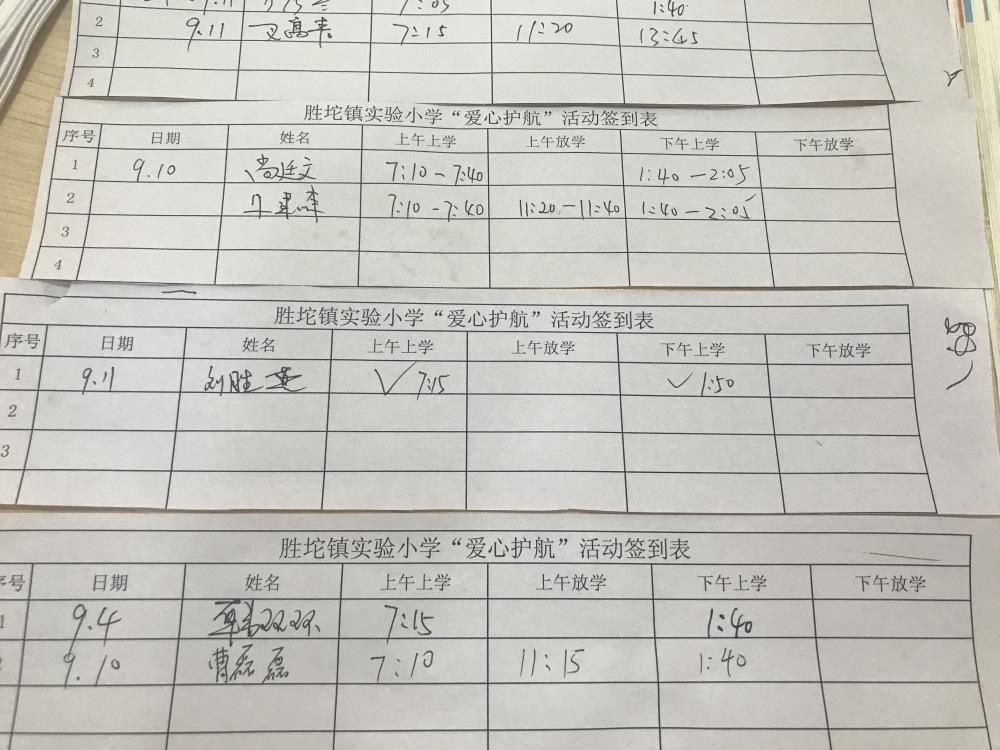 1:40
2 9.11 7:15 11:20 13:45
3
4
胜坨镇实验小学“爱心护航”活动签到表
序号 日期 姓名 上午上学 上午放学 下午上学 下午放学
1 9.10 尚廷文 7:10-7:40 1:40-2:05
2 7:10-7:40 11:20-11:40 1:40-2:05
3
4
胜坨镇实验小学“爱心护航”活动签到表
序号 日期 姓名 上午上学 上午放学 下午上学 下午放学
1 9.11 刘胜 ✓7:15 ✓1:50
2
3
胜坨镇实验小学“爱心护航”活动签到表
序号 日期 姓名 上午上学 上午放学 下午上学 下午放学
1 9.4 7:15 1:40
9.10 曹磊磊 7:10 11:15 1:40